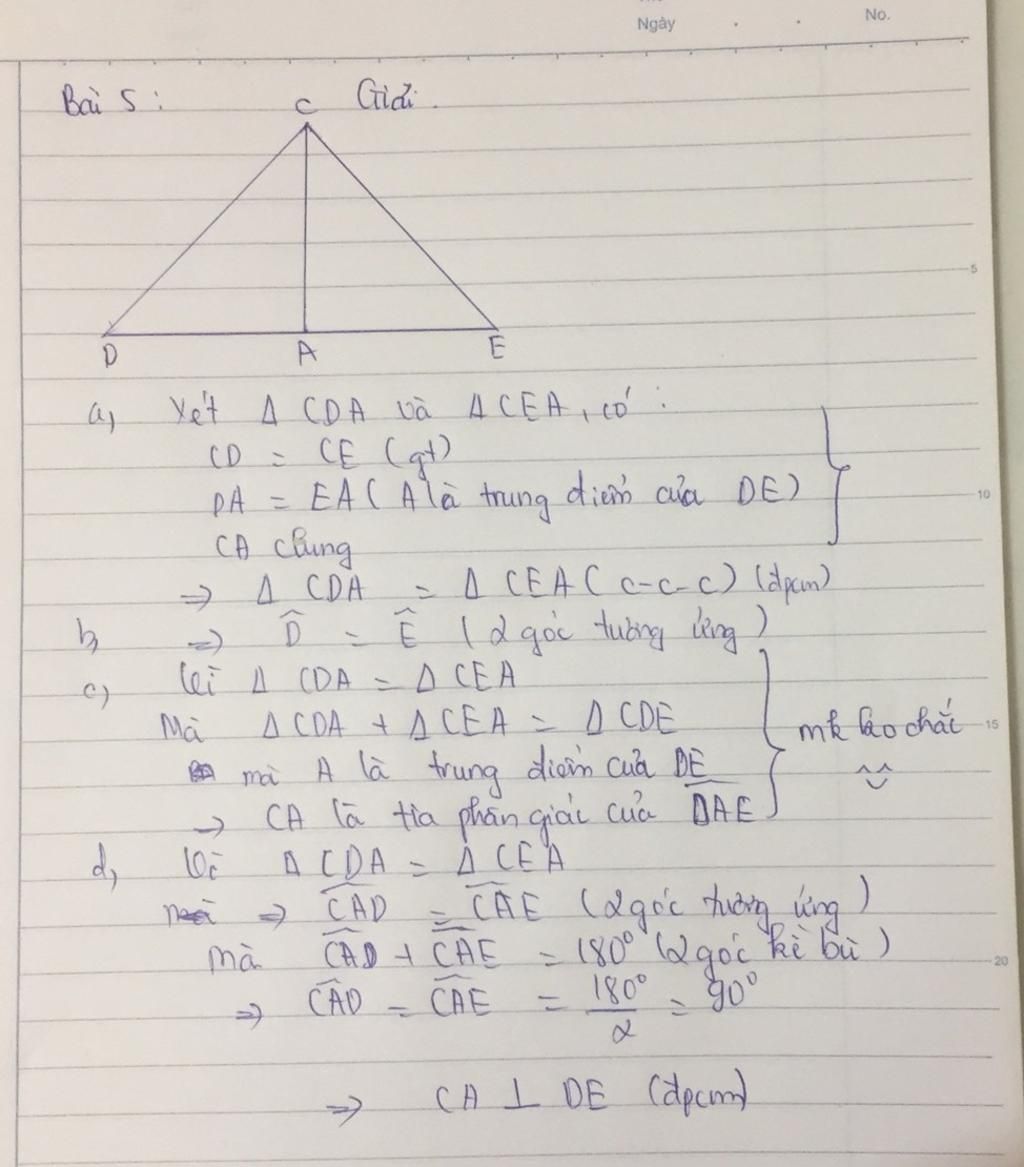 Ngày
No.
Bài 5 :
Giải.
C
D
A
E
5
a, Xét Δ CDA và Δ CEA, có :
CD = CE (gt)
DA = EA ( A là trung điểm của DE)
10
CA chung
=> Δ CDA = Δ CEA ( c-c-c) (đpcm)
b, => D̂ = Ê ( 2 góc tương ứng )
c, Vì Δ CDA = Δ CEA
Mà Δ CDA + Δ CEA = Δ CDE
mk ko chắc ^^
15
mà A là trung điểm của DE
=> CA là tia phân giác của \widehat{DAE}
d, Vì Δ CDA = Δ CEA
=> \widehat{CAD} = \widehat{CAE} (2 góc tương ứng )
Mà \widehat{CAD} + \widehat{CAE} = 180° (2 góc kề bù )
20
=> \widehat{CAD} = \widehat{CAE} = 180°/2 = 90°
=> CA ⊥ DE (đpcm)